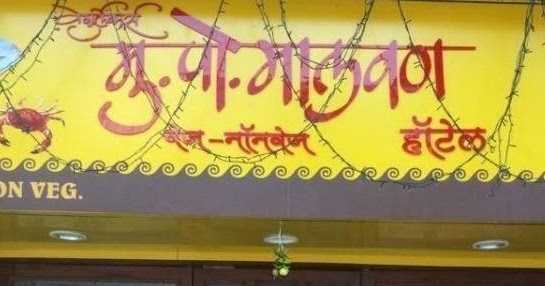 मु.पो.मालवण
व्हेज -नॉनव्हेज हॉटेल
ON VEG.